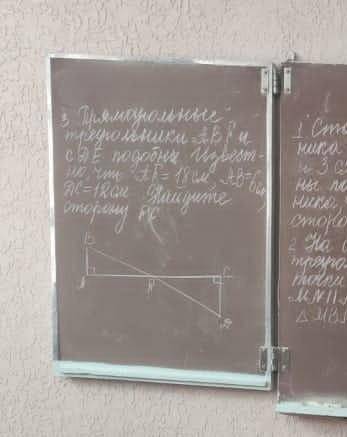 3. Прямоугольные
треугольники ABF и
CDE подобны. Извест-
но, что AF=18см, AB=6см,
DC=12см. Найдите
сторону FC
B
A
F
C
D
1. Сто
ника
и 3 с
ны по
ника
сторо
2. На с
треуго
точки
MN II A
△ MBN